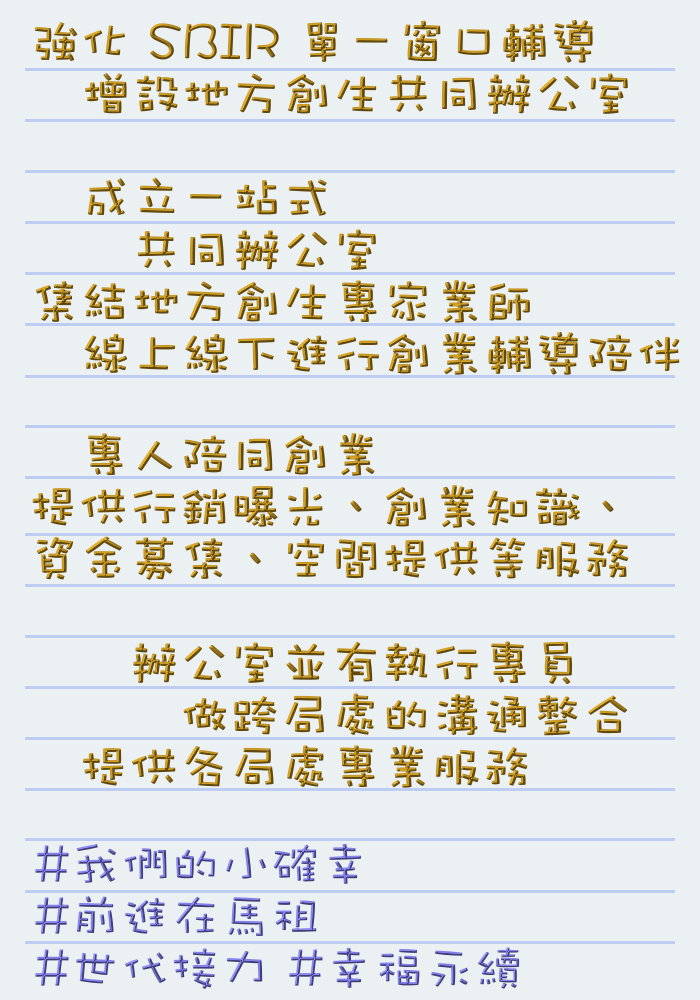 強化 SBIR 單一窗口輔導
增設地方創生共同辦公室
成立一站式
共同辦公室
集結地方創生專家業師
線上線下進行創業輔導陪伴
專人陪同創業
提供行銷曝光、創業知識、
資金募集、空間提供等服務
辦公室並有執行專員
做跨局處的溝通整合
提供各局處專業服務
#我們的小確幸
#前進在馬祖
#世代接力 #幸福永續